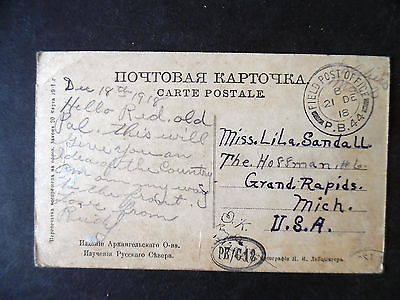 Dec 18th 1918
ПОЧТОВАЯ КАРТОЧКА.
CARTE POSTALE.
FIELD POST OFFICE
21 DE
18
P.B.44
Hello Red. old
Pal. this will
give you an
Idea of the Country
I am on my way
to the front.
Love from
Rudy
Miss. Lila. Sandall
The. Hoffman
Grand. Rapids.
Mich.
U.S.A.
Изданіе Архангельскаго О-ва.
Изученія Русскаго Сѣвера.